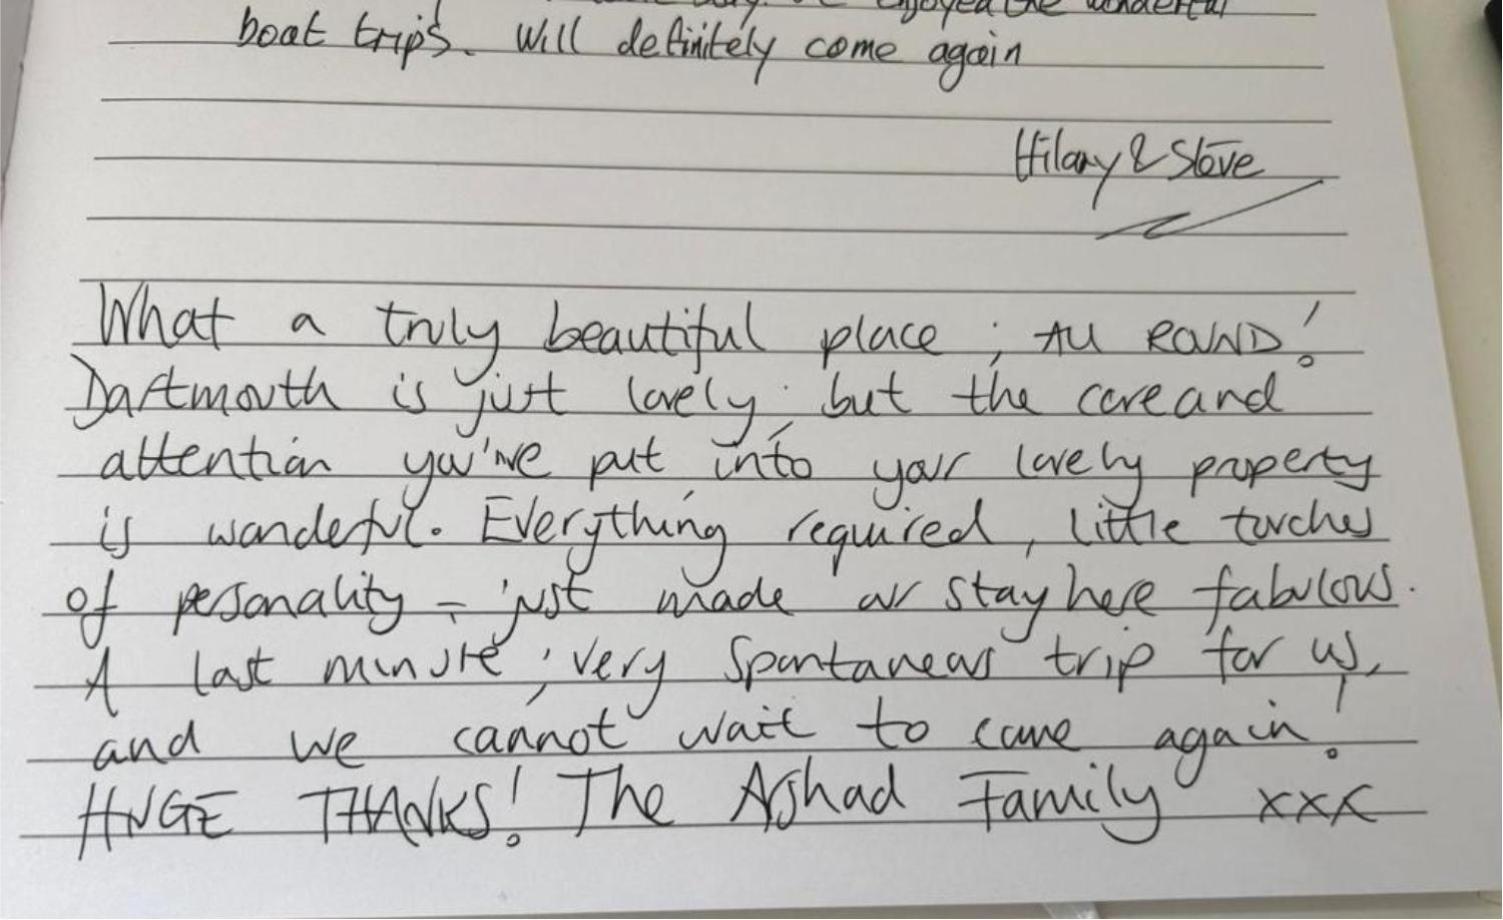 enjoyed the wonderful
boat trips. Will definitely come again
Hilary & Steve
What a truly beautiful place ; All ROUND!
Dartmouth is just lovely; but the care and
attention you've put into your lovely property
is wonderful. Everything required, little touches
of personality - just made our stay here fabulous.
A last minute, very spontaneous trip for us,
and we cannot wait to come again!
HUGE THANKS! The Arshad Family xxx